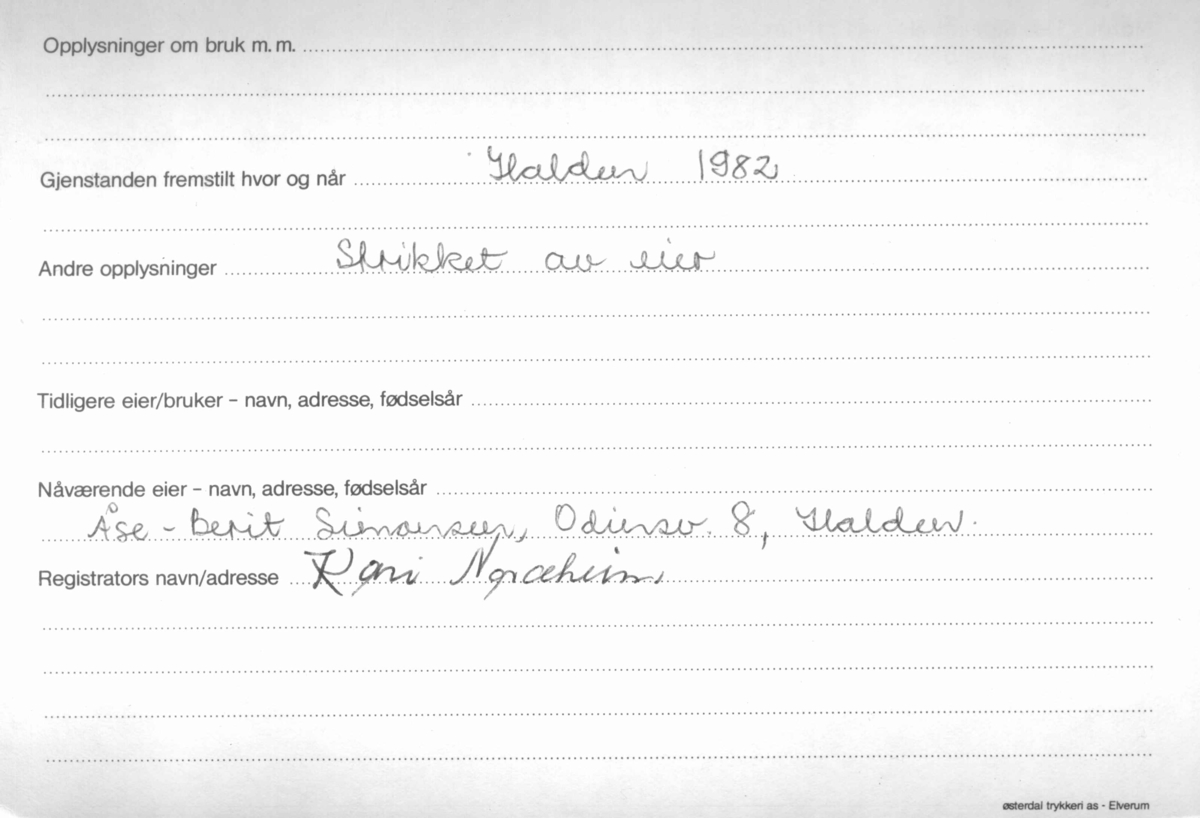 Opplysninger om bruk m. m.
Gjenstanden fremstilt hvor og når Halden 1982
Andre opplysninger Strikket av eier
Tidligere eier/bruker – navn, adresse, fødselsår
Nåværende eier – navn, adresse, fødselsår
Åse-Berit Simonsen, Odinsv. 8, Halden.
Registrators navn/adresse Kari
østerdal trykkeri as - Elverum